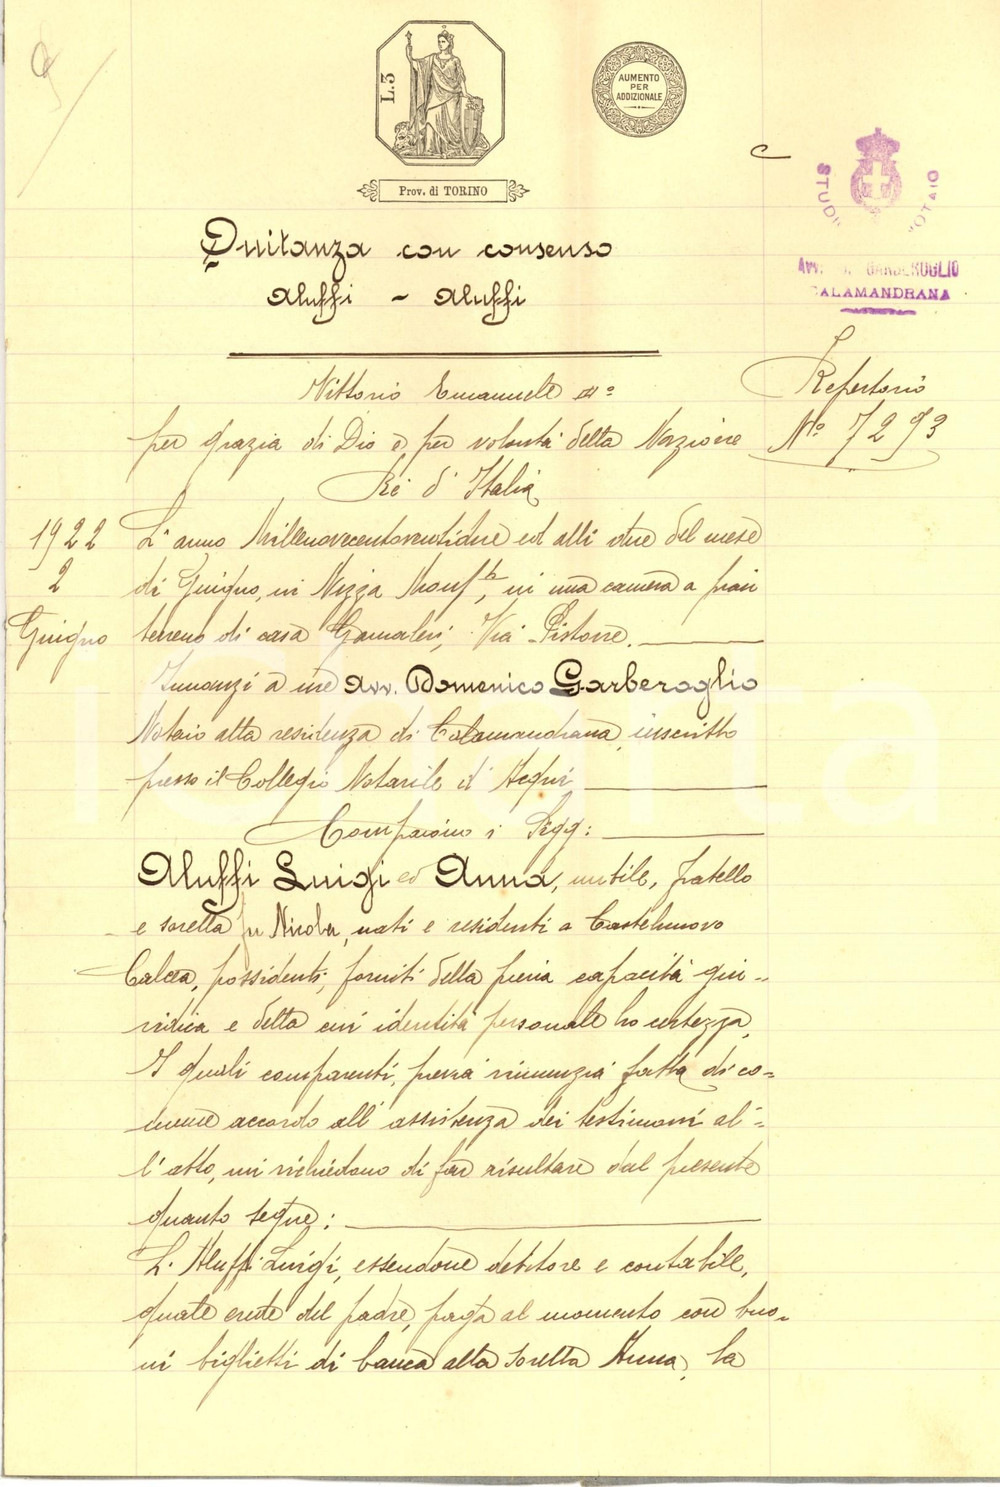 L.3
AUMENTO
PER
ADDIZIONALE
Prov. di TORINO
STUDI NOTAIO
AVV. GARBEROGLIO
CALAMANDRANA
Quitanza con consenso
Aluffi - Aluffi
Vittorio Emanuele III°
Repertorio
N° 7293
per grazia di Dio e per volontà della Nazione
Re d'Italia
1922
2
Giugno
L'anno Millenovecentoventidue ed alli due del mese
di Giugno, in Nizza Monf.to, in una camera a pian
terreno di casa Gamaleri, Via Pistone.
Innanzi a me Avv. Domenico Garberoglio
Notaio alla residenza di Calamandrana, inscritto
presso il Collegio Notarile d'Acqui
Compaiono i Sigg:
Aluffi Luigi ed Anna, nubile, fratello
e sorella fu Nicola, nati e residenti a Castelnuovo
Calcea, possidenti, forniti della piena capacità giu-
ridica e della cui identità personale ho certezza,
I quali comparenti, previa rinunzia fatta di co=
mune accordo all'assistenza dei testimoni al=
l'atto, mi richiedono di far risultare dal presente
quanto segue:
L. Aluffi Luigi, essendone debitore e contabile,
quale erede del padre, paga al momento con buo=
ni biglietti di banca alla sorella Anna, la